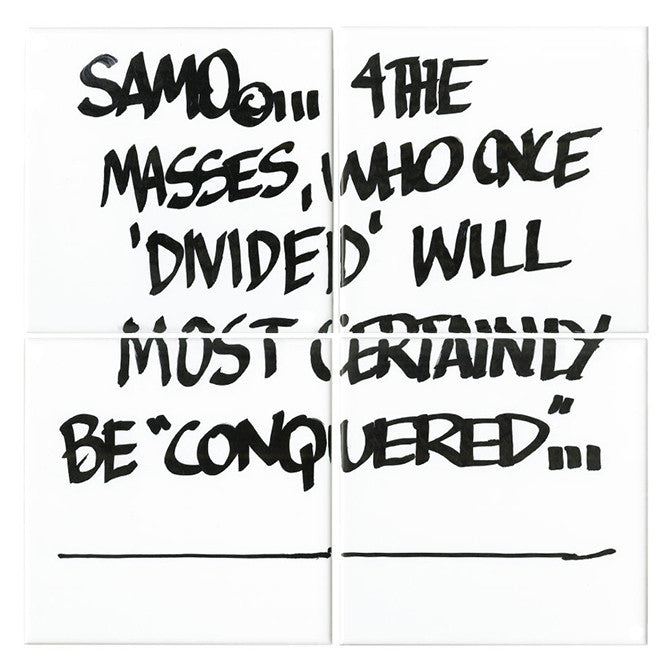 SAMO©... 4 THE
MASSES, WHO ONCE
'DIVIDED' WILL
MOST CERTAINLY
BE "CONQUERED"...